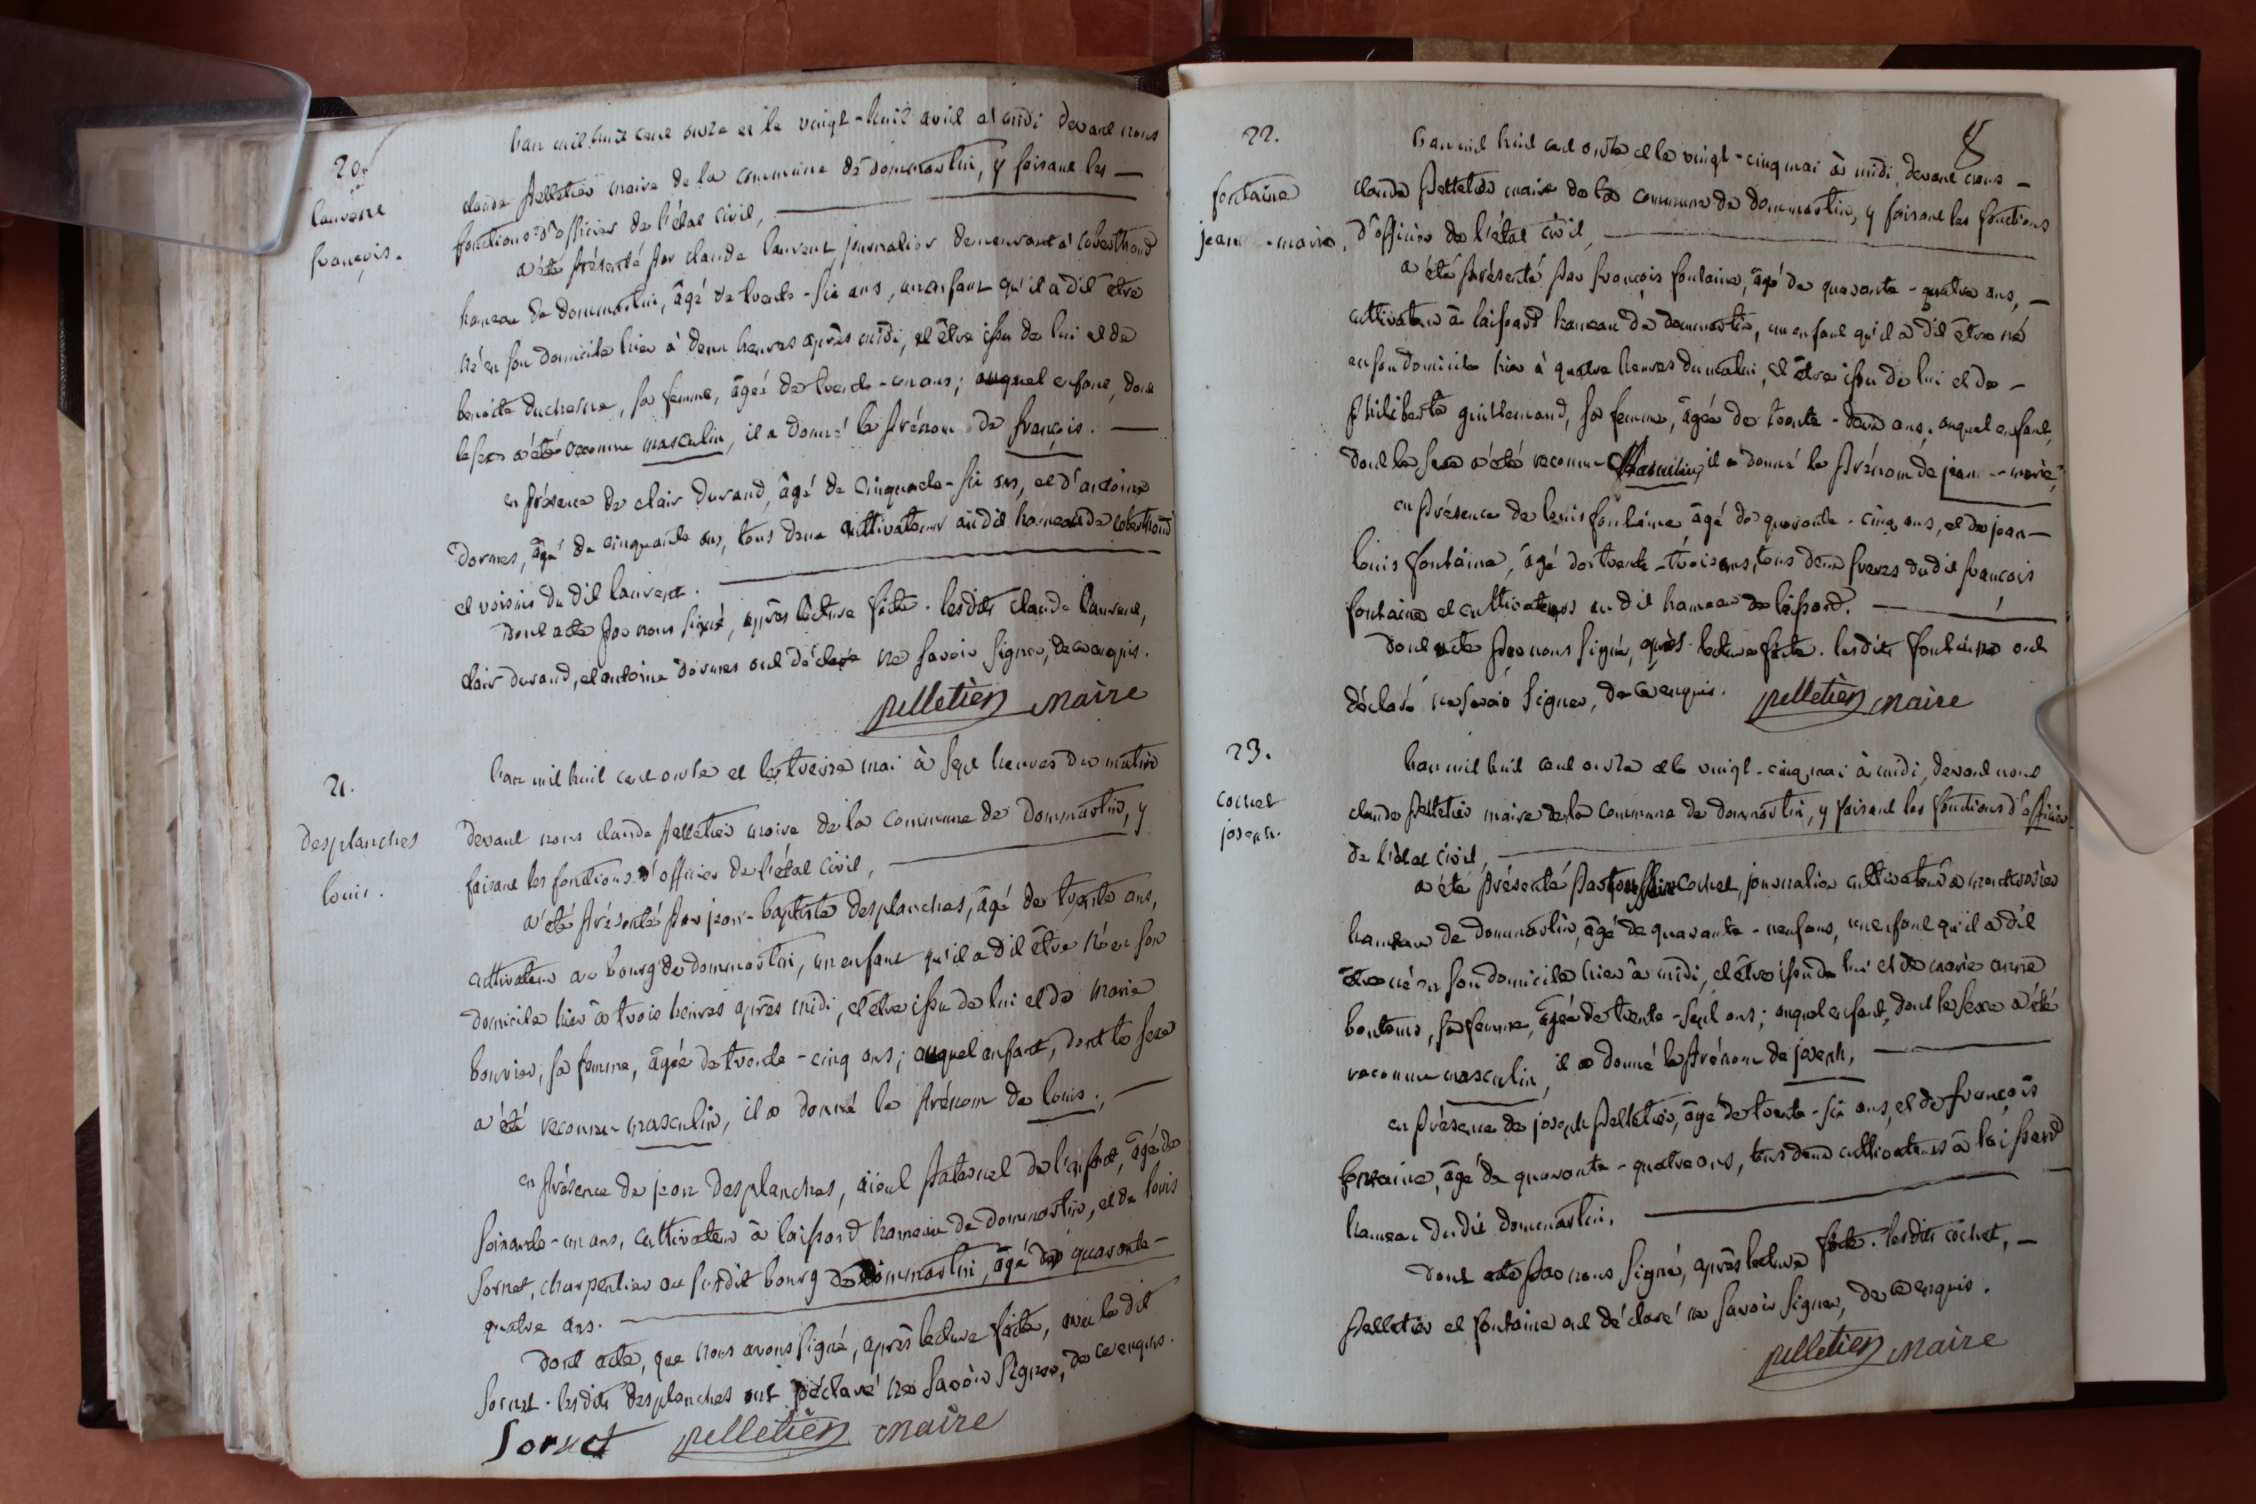 20.
laurent
françois.
l'an mil huit cent onze et le vingt-huit avril a midi devant nous
claude pelletier maire de la commune de dommartin, y faisant les
fonctions d'officier de l'état civil,
a été présenté par claude laurent, journalier demeurant à
hameau de dommartin, âgé de trente-six ans, un enfant qu'il a dit etre
né en son domicile hier à deux heures après midi, et être issu de lui et de
benoite duchesne, sa femme, âgée de trente-un ans; auquel enfant, dont
le sexe a été reconnu masculin, il a donné le prénom de françois.
en présence de clair durand, âgé de cinquante-six ans, et d'antoine
dormes, âgé de cinquante ans, tous deux cultivateurs au dit hameau de
et voisins du dit laurent.
dont acte par nous signé, après lecture faite. lesdits claude laurent,
clair durand, et antoine dormes ont déclaré ne savoir signer, de ce enquis.
pelletier maire
21.
desplanches
louis.
l'an mil huit cent onze et le treize mai à sept heures du matin
devant nous claude pelletier maire de la commune de dommartin, y
faisant les fonctions d'officier de l'état civil,
a été présenté par jean-baptiste desplanches, âgé de trente ans,
cultivateur au bourg de dommartin, un enfant qu'il a dit être né en son
domicile hier à trois heures après midi, et être issu de lui et de marie
bouvier, sa femme, âgée de trente-cinq ans; auquel enfant, dont le sexe
a été reconnu masculin, il a donné le prénom de louis.,
en présence de jean desplanches, aïeul paternel de l'enfant, âgé de
soixante-un ans, cultivateur à laissard hameau de dommartin, et de louis
sornet, charpentier au susdit bourg de dommartin, âgé de quarante-
quatre ans.
dont acte, que nous avons signé, après lecture faite, avec le dit
sornet. lesdits desplanches ont déclaré ne savoir signer, de ce enquis.
Sornet pelletier maire
8
22.
fontaine
jean-marie.
l'an mil huit cent onze et le vingt-cinq mai à midi, devant nous
claude pelletier maire de la commune de dommartin, y faisant les fonctions
d'officier de l'état civil,
a été présenté par françois fontaine, âgé de quarante-quatre ans,
cultivateur à laissard hameau de dommartin, un enfant qu'il a dit être né
en son domicile hier à quatre heures du matin, et être issu de lui et de
philiberte guillemand, sa femme, âgée de trente-deux ans, auquel enfant,
dont le sexe a été reconnu masculin, il a donné le prénom de jean-marie,
en présence de louis fontaine, âgé de quarante-cinq ans, et de jean
louis fontaine, âgé de trente-trois ans, tous deux freres du dit françois
fontaine et cultivateurs au dit hameau de laissard.
dont acte par nous signé, après lecture faite. lesdits fontaine ont
déclaré ne savoir signer, de ce enquis. pelletier maire
23.
cochet
joseph.
l'an mil huit cent onze et le vingt-cinq mai à midi, devant nous
claude pelletier maire de la commune de dommartin, y faisant les fonctions d'officier
de l'état civil,
a été présenté par cochet, journalier cultivateur a
hameau de dommartin, âgé de quarante-neuf ans, un enfant qu'il a dit
être né en son domicile hier à midi, et être issu de lui et de marie anne
boutons, sa femme, âgée de trente-sept ans; auquel enfant, dont le sexe a été
reconnu masculin, il a donné le prénom de joseph,
en présence de joseph pelletier, âgé de trente-six ans, et de françois
fontaine, âgé de quarante-quatre ans, tous deux cultivateurs à laissard
hameau du dit dommartin.
dont acte par nous signé, après lecture faite. lesdits cochet,
pelletier et fontaine ont déclaré ne savoir signer, de ce enquis.
pelletier maire